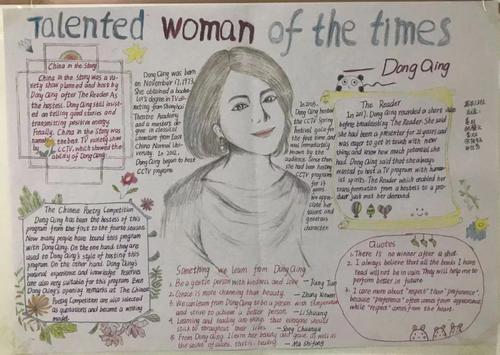 Talented woman of the times
Dong Qing
China in the Story
China in the Story was a va-
riety show planned and host by
Dong Qing after The Reader. As
the hostess, Dong Qing still insist-
ed on telling good stories and
transmitting positive energy.
Finally, China in the Story was
named the best TV variety show
by CCTV, which showed the
ability of Dong Qing.
Dong Qing was born
on November 17, 1973.
She obtained a bache-
lor's degree in TV di-
recting from Shanghai
Theatre Academy
and a master's de-
gree in classical
literature from East
China Normal
University.
In 2002,
Dong Qing began to host
CCTV programs
In 2005,
Dong Qing hosted
the CCTV Spring
Festival gala for
the first time and
was immediately
known by the
audience. Since then
she had been hosting
CCTV programs
for 13
years.
We appre-
ciate her
talent and
generous
character.
The Reader
In 2017, Dong Qing recorded a short video
before broadcasting The Reader. She said
she had been a presenter for 21 years and
was eager to get in touch with new
things and know how much potential she
had. Dong Qing said that she always
wanted to host a TV program with human-
ist spirits. The Reader which enabled her
transformation from a hostess to a pro-
ducer just met her demand.
The Chinese Poetry Competition
Dong Qing has been the hostess of this
program from the first to the fourth season.
Now many people have bound this program
with Dong Qing. On the one hand they are
used to Dong Qing's style of hosting this
program. On the other hand, Dong Qing's
personal experience and knowledge reserves
are also very suitable for this program. Even
Dong Qing's opening remarks at The Chinese
Poetry Competition are also selected
as quotations and become a writing
model.
Something we learn from Dong Qing
1. Be a gentle person with kindness and love — Jiang Tian
2. Grace is more charming than beauty. — Zhang
3. We can learn from Dong Qing to be a person with
and strive to achieve a better person — Li Shuang
4. Learning and reading are things that everyone should
stick to throughout their lives. — Song Chuanya
5. From Dong Qing, I learn her beauty and grace, as well as
the secret of them, that is, reading. — Ma Shifang
Quotes
1. There is no winner after a shot.
2. I always believe that all the books I have
read will not be in vain. They will help me to
perform better in future.
3. I care more about "respect" than "preference",
because "preference" often comes from appearance
while "respect" comes from the heart.